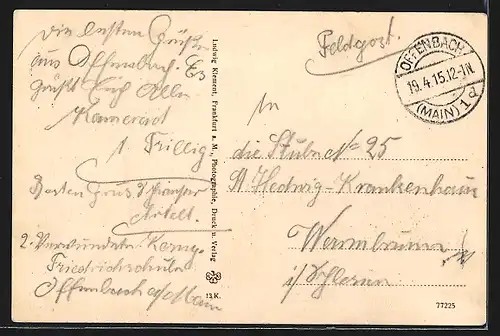 Die besten Grüße
aus Offenbach. Es
grüßt Euch Alle
Kamerad
Trillig
Besten Gruß
2. Verwundeten Komp.
Friedrichschule
Offenbach a/Main
Ludwig Klement, Frankfurt a. M., Photographie, Druck u. Verlag
13.K.
Feldpost.
OFFENBACH
19.4.15.12-1N.
(MAIN) 1 d
An
die Stube No 25
St Hedwig-Krankenhaus
Warmbrunn
i/Schlesien
77225